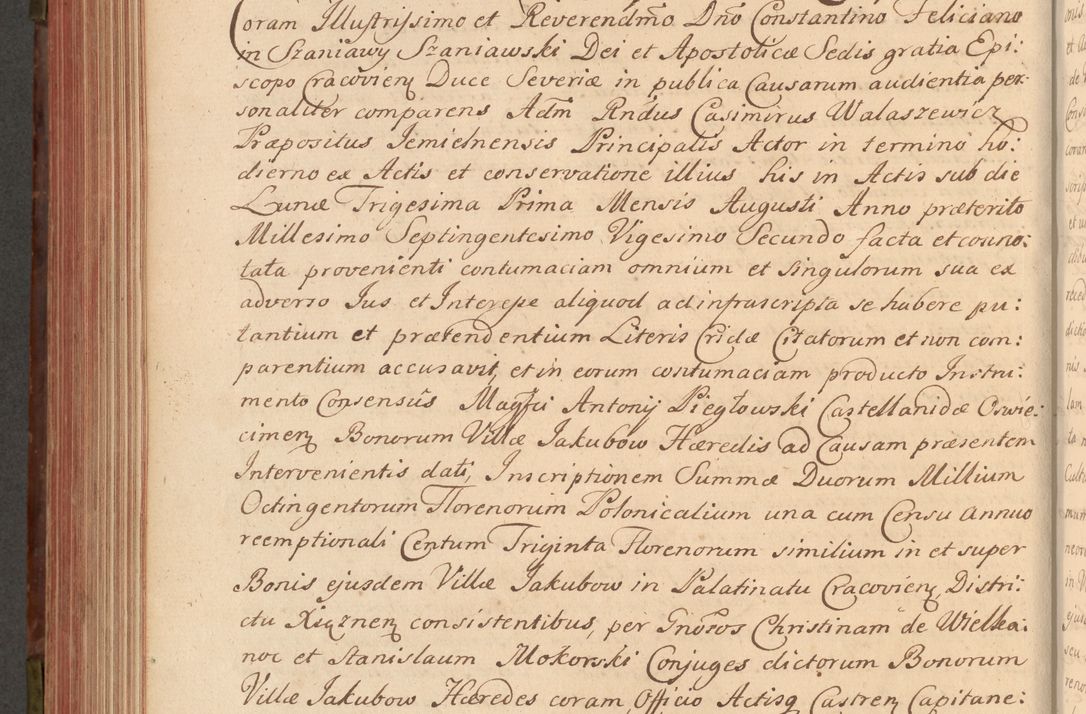 Coram Illustrissimo et Reverendmo Dno Constantino Feliciano
in Szaniawy Szaniawski Dei et Apostolicæ Sedis gratia Epi:
scopo Cracovien Duce Severiæ in publica Causarum audientia per
sonaliter comparens Adm Rndus Casimirus Walaszewicz
Præpositus Jemielnensis Principalis Actor in termino ho:
dierno ex Actis et conservatione illius his in Actis sub die
Lunæ Trigesima Prima Mensis Augusti Anno præterito
Millesimo Septingentesimo Vigesimo Secundo facta et conno:
tata provenienti contumaciam omnium et singulorum sua ex
adverso Jus et Interesse aliquod ad infrascripta se habere pu:
tantium et prætendentium Literis Cridæ Citatorum et non com:
parentium accusavit, et in eorum contumaciam producto Instru:
mento Consensûs Magfci Antonij Piegłowski Castellanidæ Oswie:
cimen Bonorum Villæ Jakubow Hæredis ad Causam præsentem
Intervenientis dati, Inscriptionem Summæ Duorum Millium
Octingentorum Florenorum Polonicalium una cum Censu annuo
reemptionali Centum Triginta Florenorum similium in et super
Bonis ejusdem Villæ Jakubow in Palatinatu Cracovien, Distri:
ctu Xięznen consistentibus, per Gnosos Christinam de Wielka:
noc et Stanislaum Mokorski Conjuges dictorum Bonorum
Villæ Jakubow Hæredes coram Officio Actisq Castren Capitane: